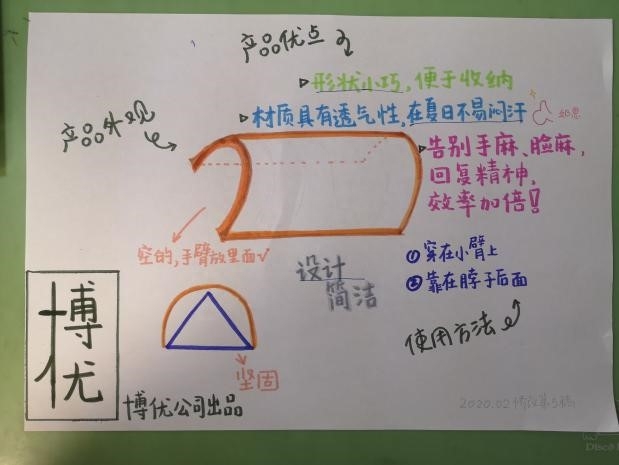 产品优点
形状小巧，便于收纳
材质具有透气性，在夏日不易闷汗
产品外观
告别手麻、脸麻，
回复精神，
效率加倍！
空的，手臂放里面√
设计
简洁
①穿在小臂上
②靠在脖子后面
使用方法
博
优
坚固
博优公司出品
2020.02修改第5稿